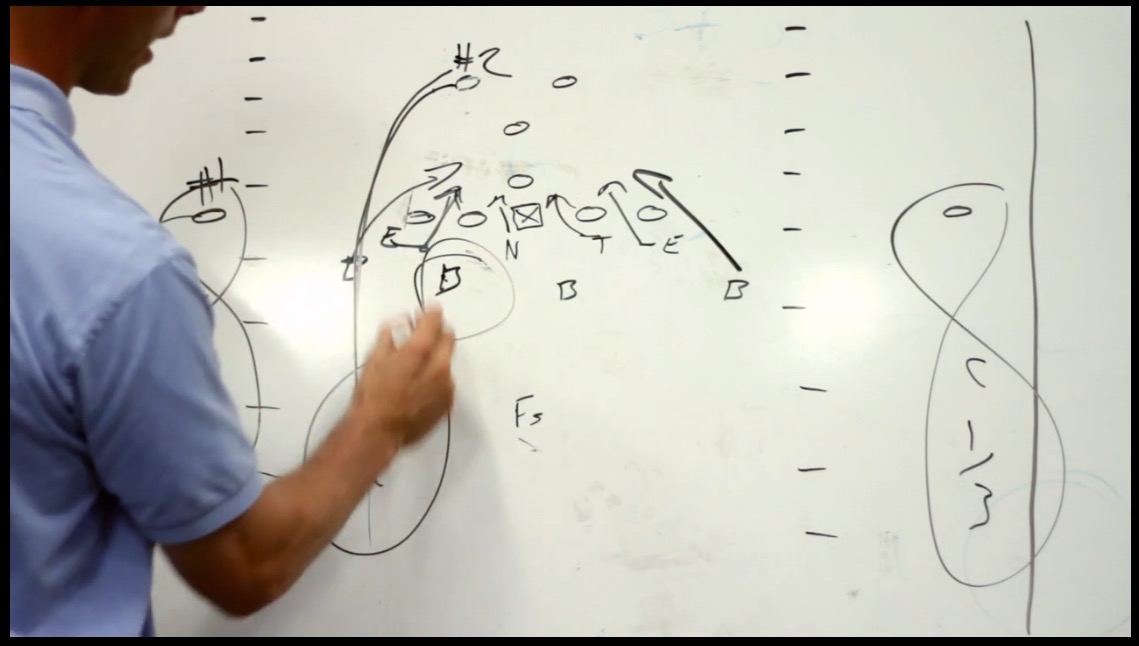 #2
#1
E
N
T
E
B
B
B
Fs
C
1/3